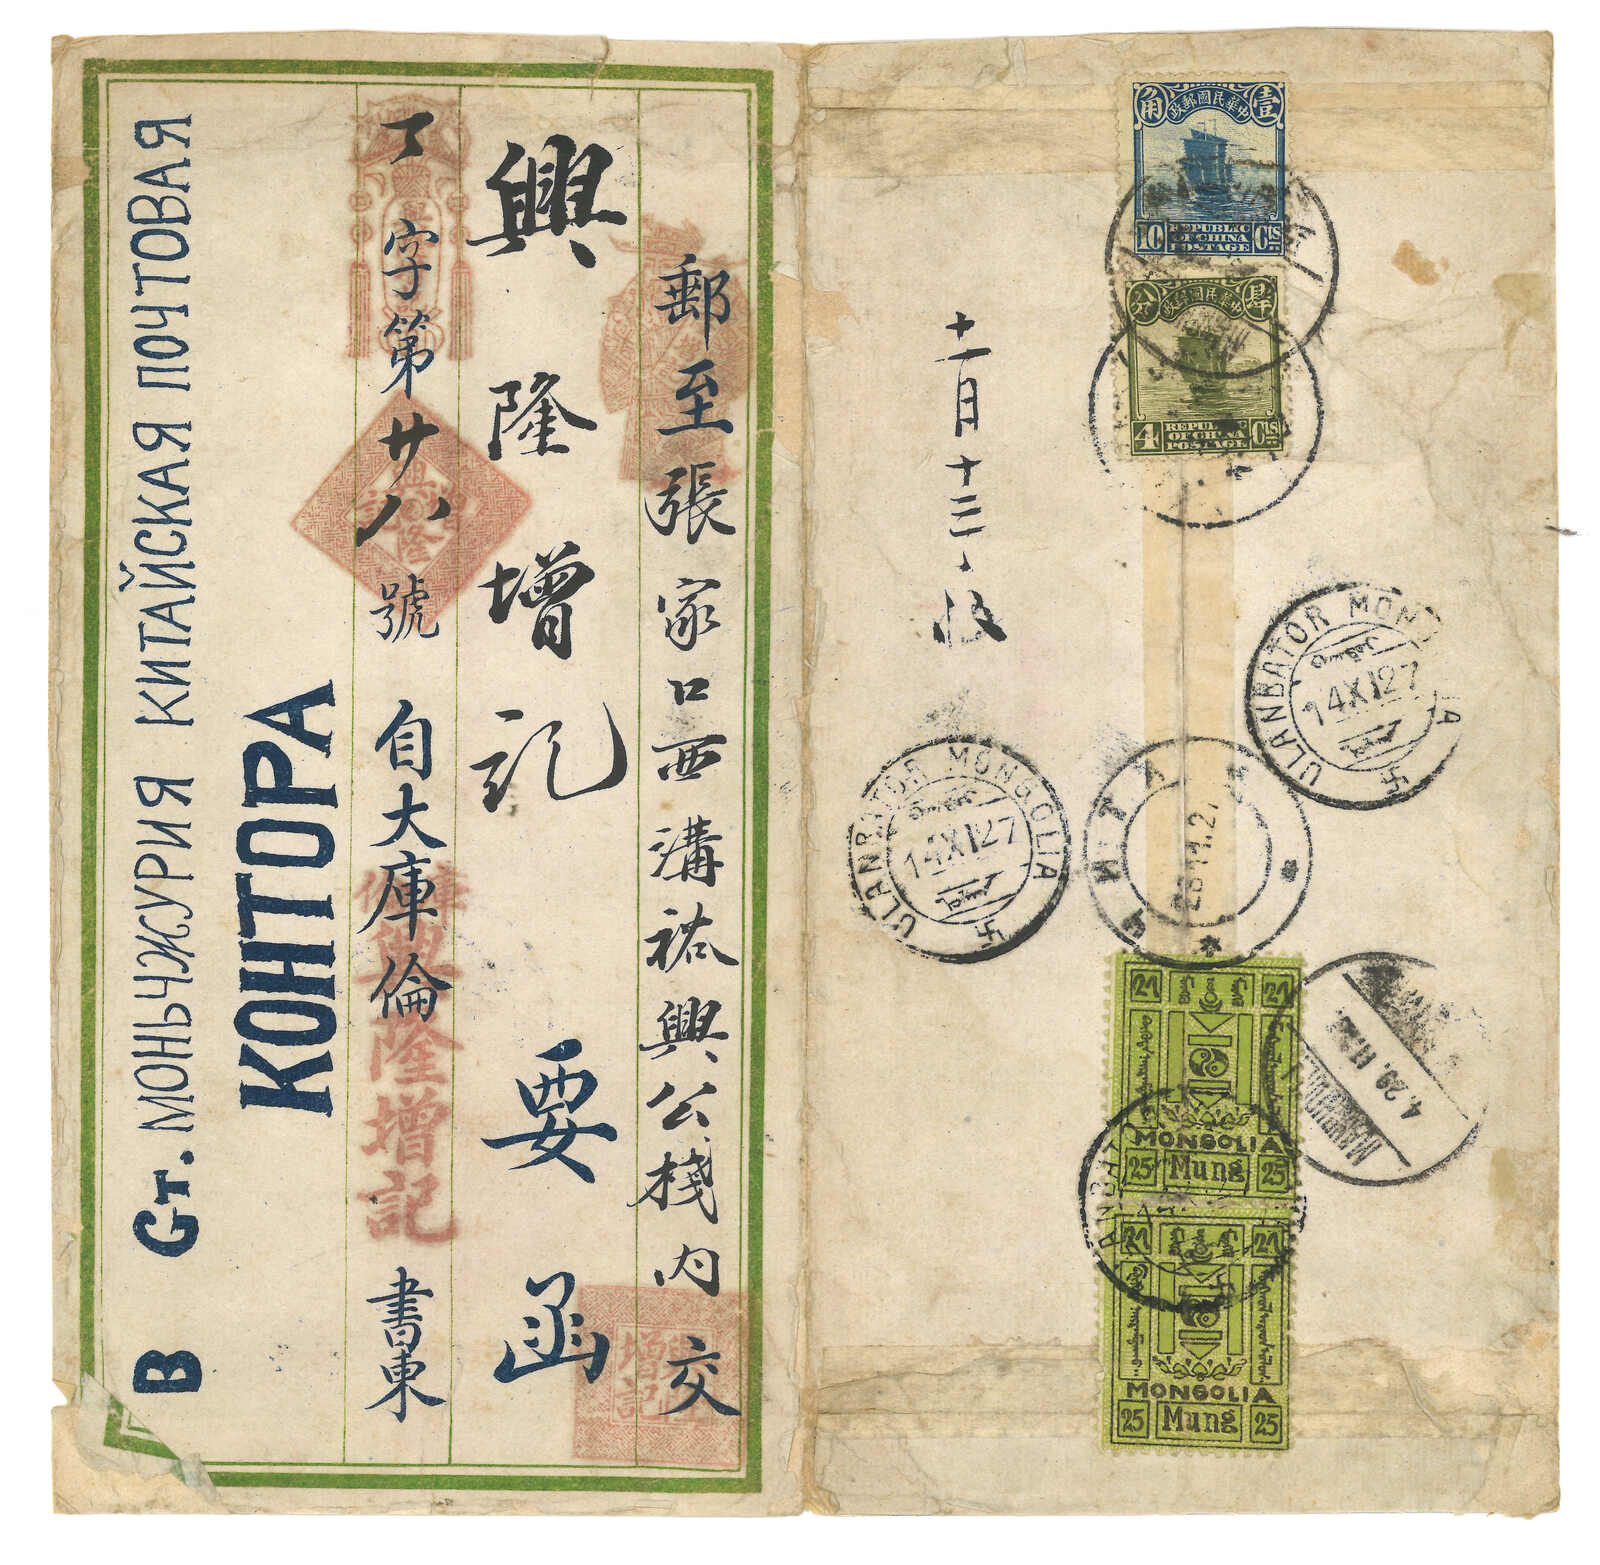 郵至張家口西溝祐興公棧內交
興隆增記 要函
丁字第廿八號 自大庫倫 書柬
興隆增記
增記
В Ст. МОНЬЧЖУРИЯ КИТАЙСКАЯ ПОЧТОВАЯ
КОНТОРА
十一月十三
角 壹
中華民國郵政
10 REPUBLIC OF CHINA POSTAGE Cts
分 肆
中華民國郵政
4 REPUBLIC OF CHINA POSTAGE Cts
ULANBATOR MONGOLIA
14 XI 27
ULANBATOR MONGOLIA
14 XI 27
ЧИТА
23.11.2
4.29.11.2
MONGOLIA
25 Mung 25
MONGOLIA
25 Mung 25